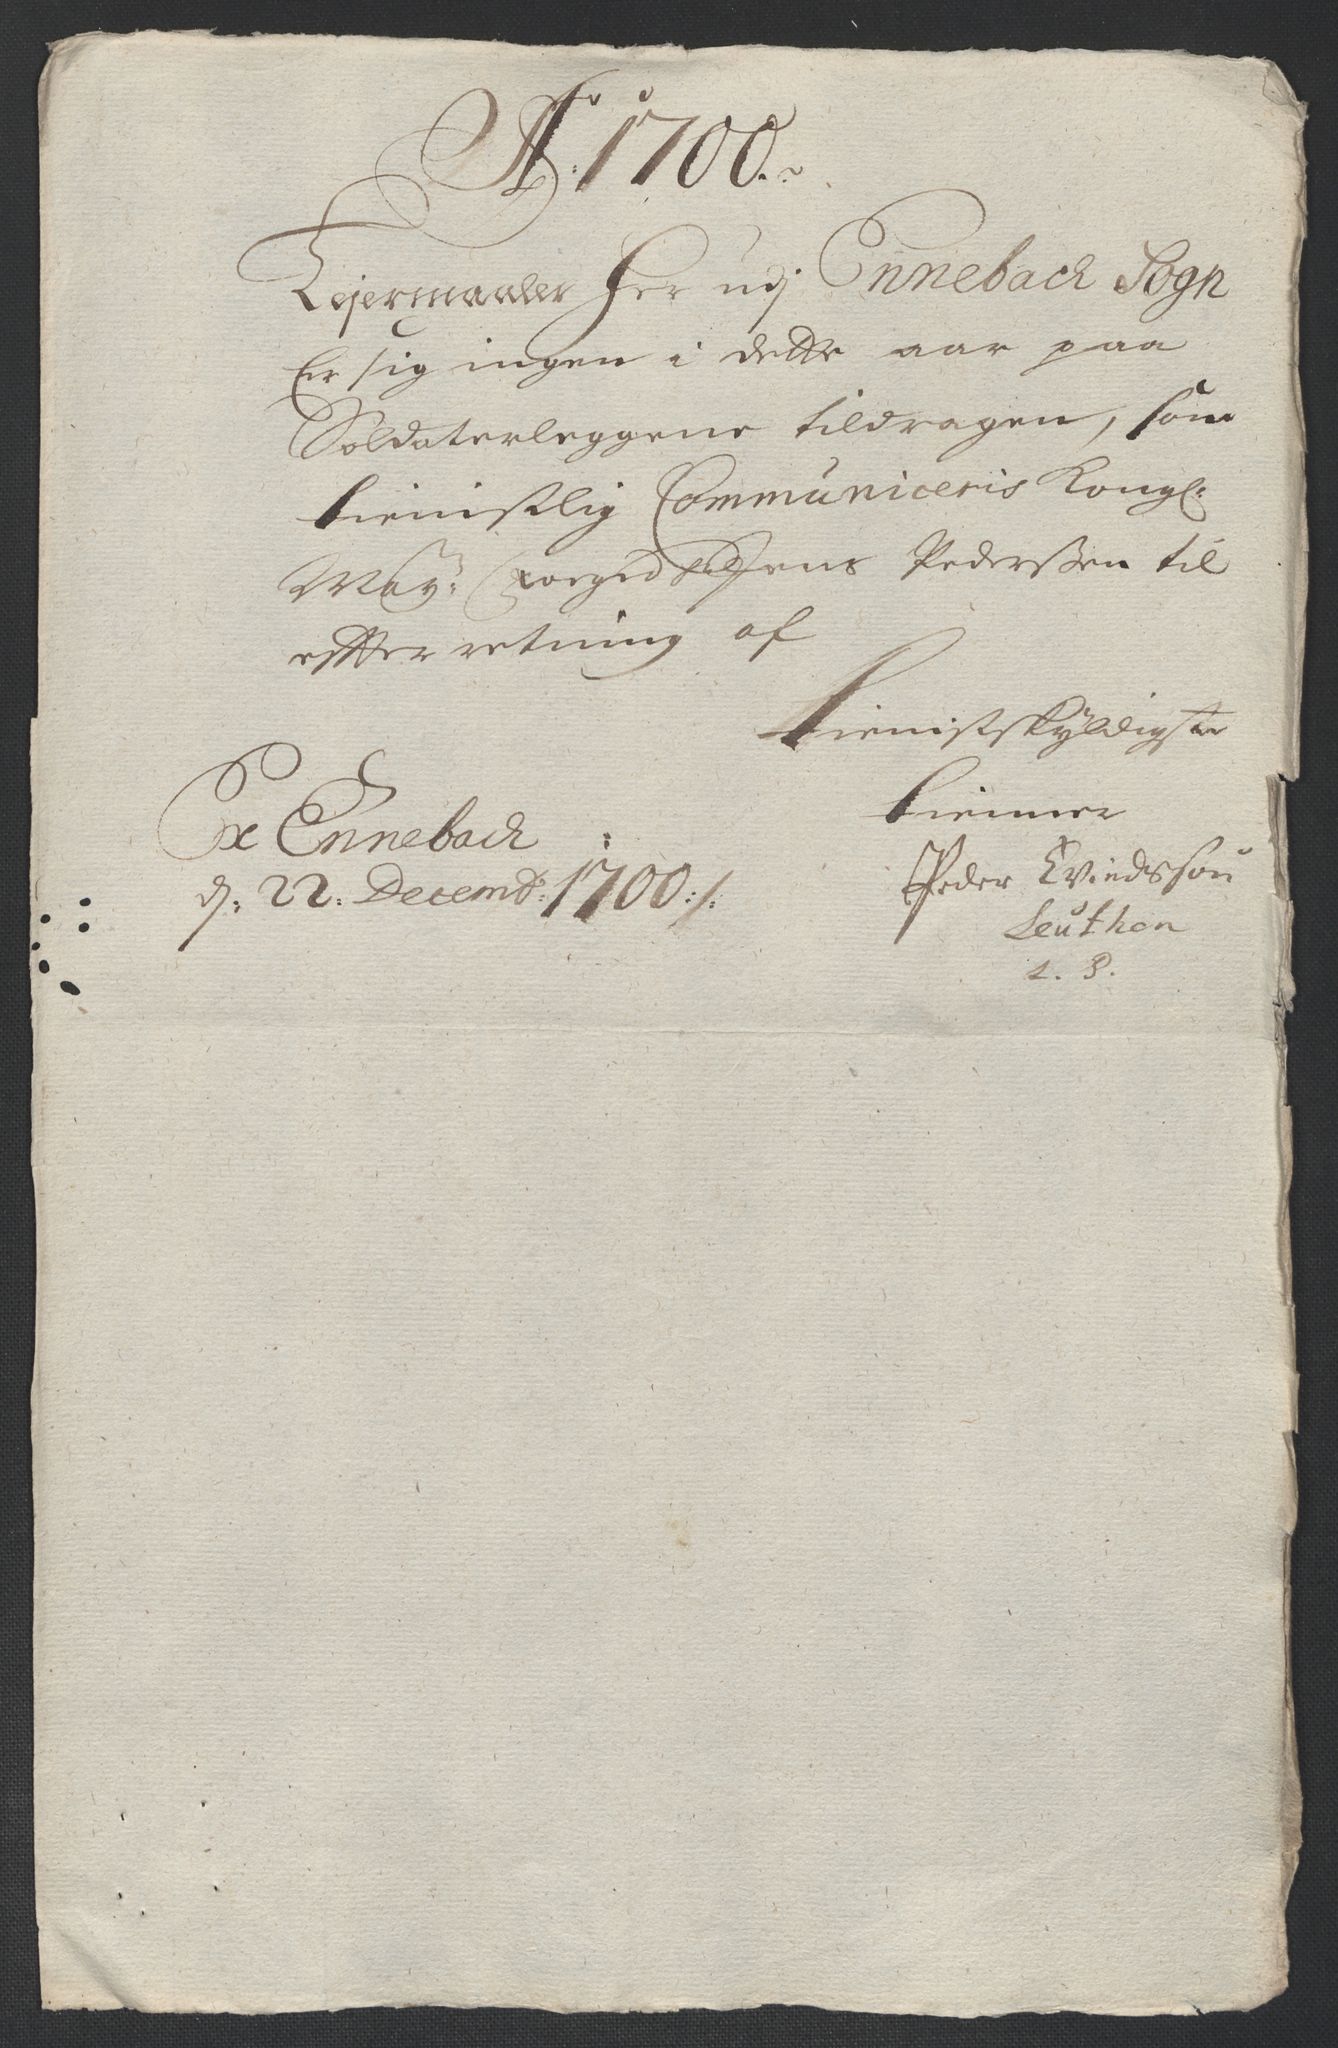 Ao: 1700.
Lejermaaler her udj Ennebach Sogn
Er sig ingen i dette aar paa
Soldaterleggene tildragen, som
tienistlig Communiceris Kongl:
May: Foegid Hr Jens Pederssen til
effterretning af
tienistskyldigste
tienner
Peder Evindssøn
Leuthen
Ex Ennebach
d: 22: Decemb: 1700:/: